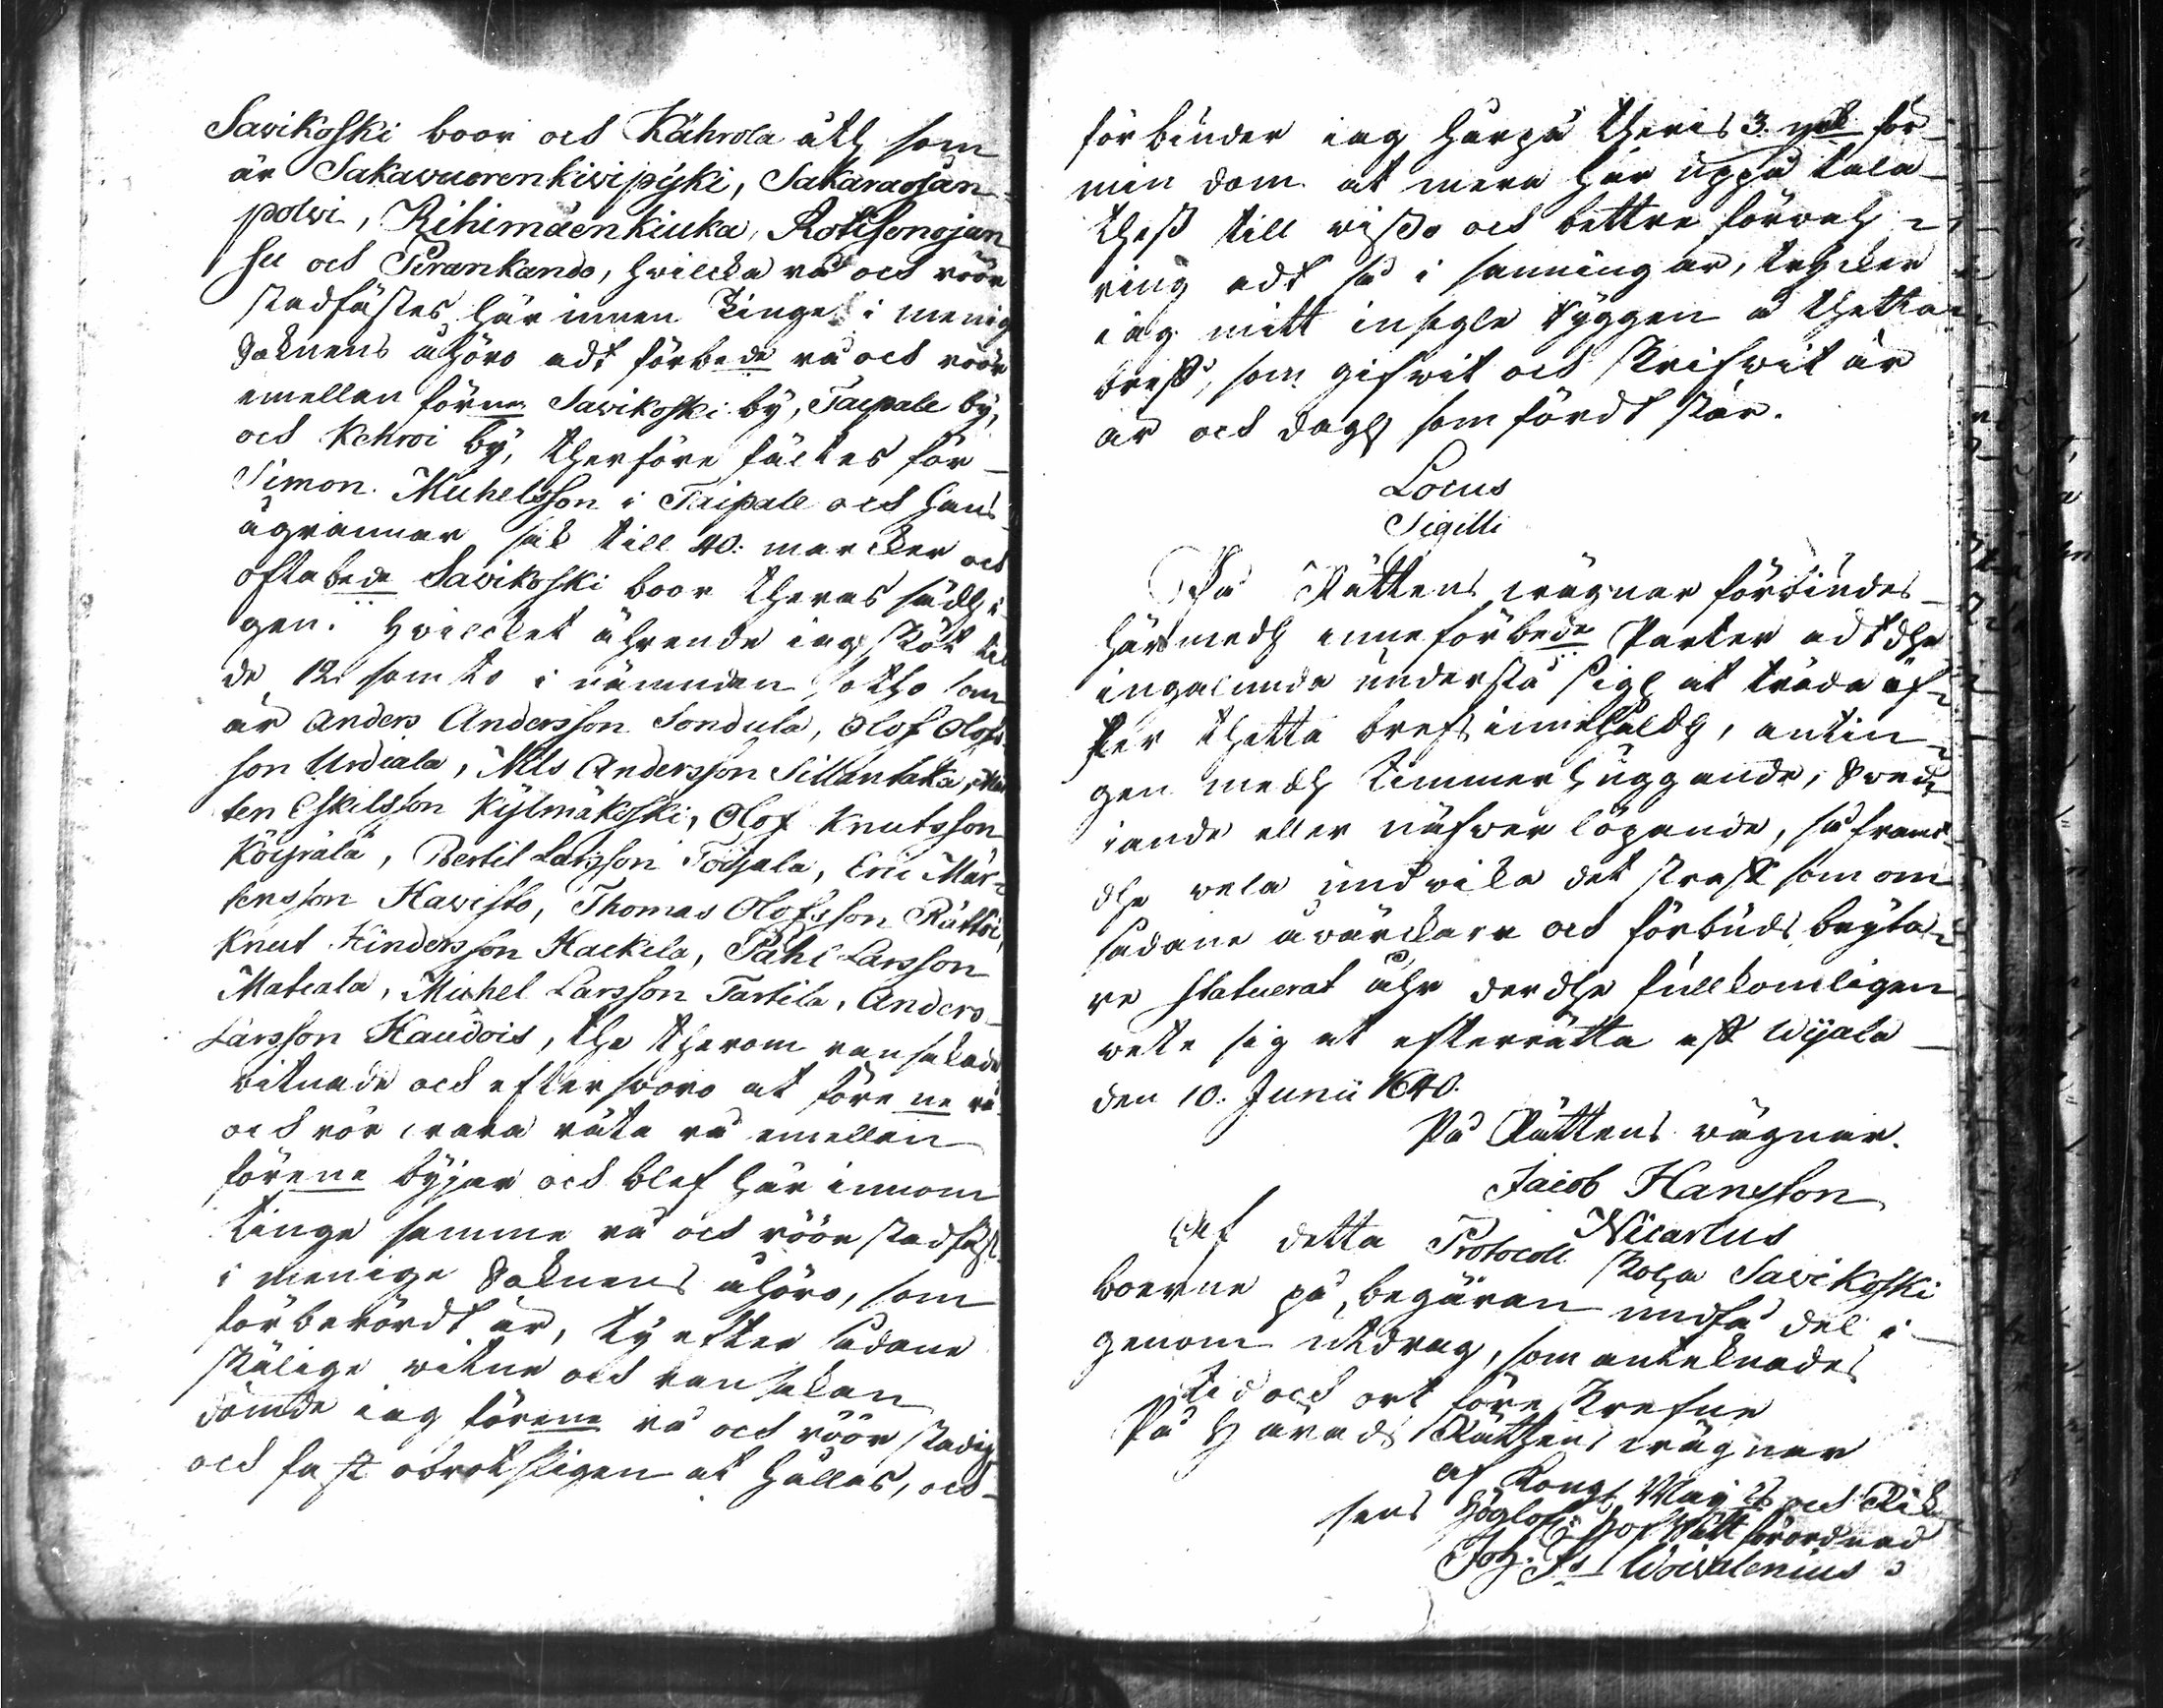 Savikoski boor och Kährola åth som
är Sakawuorenkivipijki, Sakaraosan-
polwi, Rihimäenkiuka, Rotisonojan
su och Perankando, hvilcka rå och röör
stadfästes här innan Tinge i menig
Soknens åhöro adt förbede rå och röör
emellan förne Savikoski by, Taipale by,
och Kehroi by, therföre fältes för-
Simon Michelsson i Taipale och hans
ägrannar sak till 40: marcker och
oftabede Savikoski boor theras sädh i-
gen. Hvilcket ährende iag sköt till
de 12 som to i nämnden sotho som
är Anders Andersson Sondula, Olof Olofs-
son Urdiala, Nils Andersson Sillantaka, Mår
ten Eskilsson Kylmäkoski, Olof Knutsson
Köyrälä, Bertil Larsson Toijala, Eric Mår-
tensson Hawisto, Thomas Olofsson Rättöi,
Knut Hindersson Kackila, Påhl Larsson
Matiala, Michel Larsson Tartila, Anders
Larsson Kaudois, the therom ransakade
vitnade och eftersworo at före ne rå
och rör vara räta rå emellan
förene byjar och blef här innom
tinge samme rå och röör stadfäst
i menige Soknens åhöro, som
förberördt är, ty efter sådane
skälige vitne och ransakan
dömde iag förene rå och röör stadig
och fast obrotsligen at hållas, och
förbinder iag härpå theris 3 mk för
min dom at mera här uppå tala
thess till visso och bettre förwah-
ring adt så i sanning är, trycker
iag mitt insegle ryggen å thetta
breff, som gifwit och skrifwit är
år och dagh som fördt står.
Locus
Sigilli
På Rättens wägnar förbindes
härmedh inneförbede Parter adt dhe
ingalunda understå sigh at träda öf-
ver thetta brefs innehåldh, antin-
gen medh timmerhuggande, swed-
iande eller näfwerlöpande, så framt
dhe vela undwika det straff som om
sådane åwärckare och förbuds bryta-
re statuerat ähr der dhe fullkomligen
wete sig at efterrätta aff Wijala
den 10. Junii 1640.
På Rättens wägnar.
Jacob Hansson
Nicarlus
Af detta Protocoll skola Savikoski
boerne på begäran undfå del i-
genom utdrag, som antecknades
tid och ort före skrefne
På Härads Rättens wägnar
af Kongl. Maijts och Rik-
sens Höglofl. Hof Rätt förordnad
Joh. Fr. Woivalenius